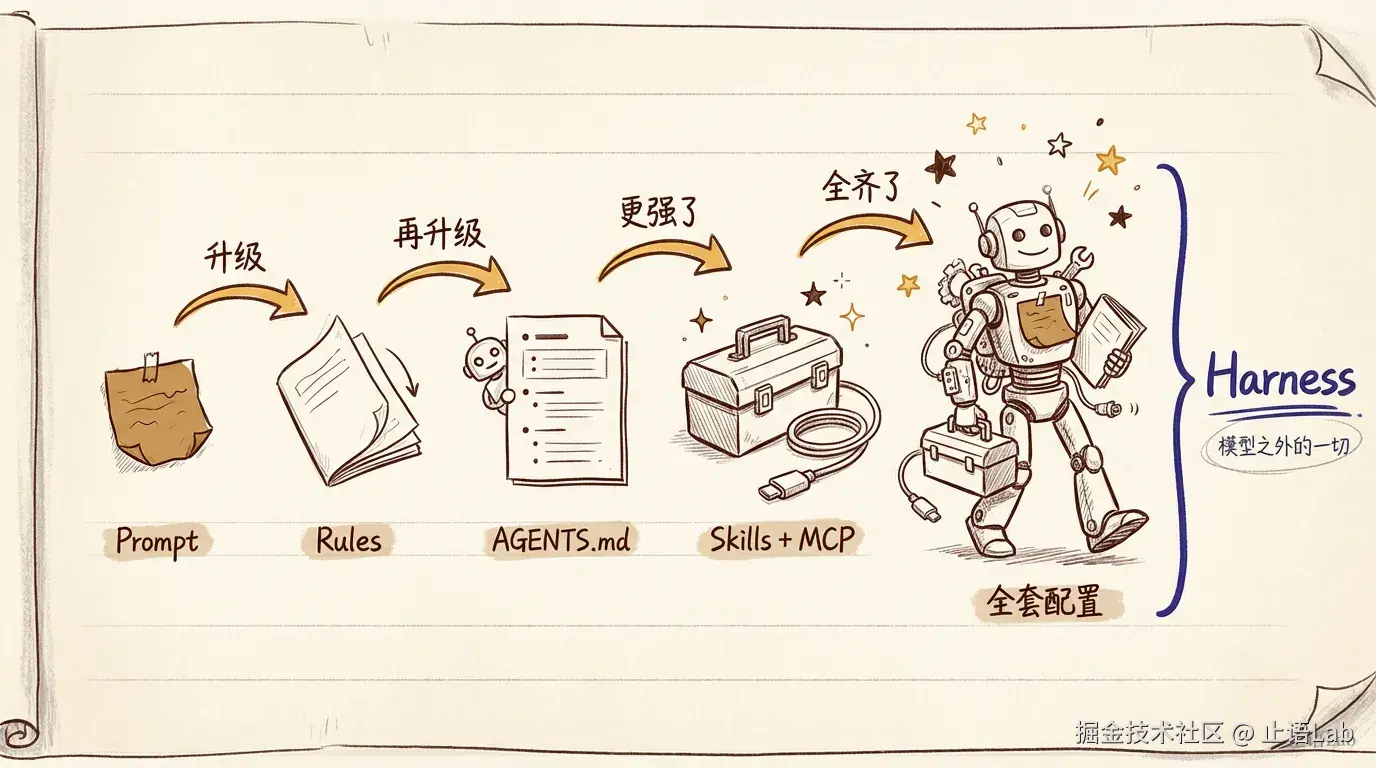 升级
再升级
更强了
全齐了
Prompt
Rules
AGENTS.md
Skills + MCP
全套配置
Harness
模型之外的一切
掘金技术社区 @ 止语Lab